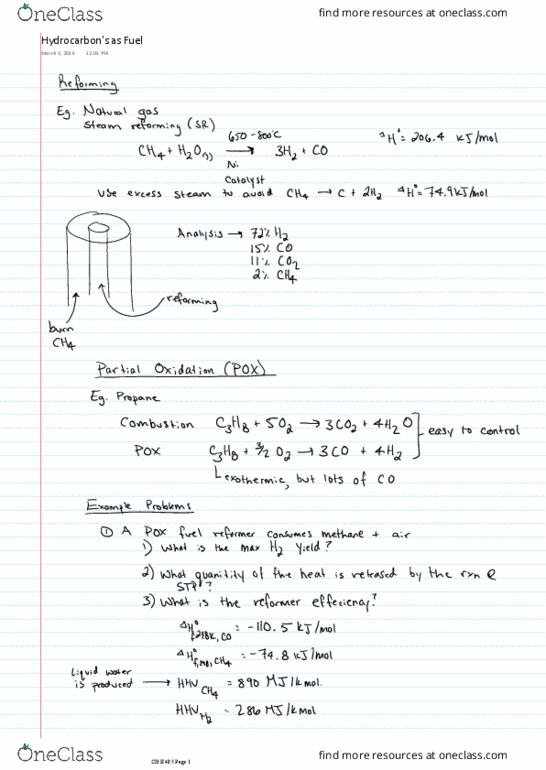 OneClass
find more resources at oneclass.com
Hydrocarbon's as Fuel
March 4, 2019 12:01 PM
Reforming
Eg. Natural gas
Steam reforming (SR)
CH₄ + H₂O(g) 650-800°C → 3H₂ + CO ΔH° = 206.4 kJ/mol
Ni
Catalyst
Use excess steam to avoid CH₄ → C + 2H₂ ΔH° = 74.9 kJ/mol
Analysis → 72% H₂
15% CO
11% CO₂
2% CH₄
reforming
burn
CH₄
Partial Oxidation (POX)
Eg. Propane
Combustion C₃H₈ + 5O₂ → 3CO₂ + 4H₂O
easy to control
POX C₃H₈ + 3/2 O₂ → 3CO + 4H₂
exothermic, but lots of CO
Example Problems
① A POX fuel reformer consumes methane + air
1) What is the max H₂ yield?
2) What quanitity of the heat is released by the rxn @
STP?
3) What is the reformer effeciency?
ΔH°f,298K,CO = -110.5 kJ/mol
CH₄ = -74.8 kJ/mol
Liquid water
is produced → HHV CH₄ = 890 MJ/kmol
HHV H₂ = 286 MJ/kmol
OneClass
Page 1
find more resources at oneclass.com